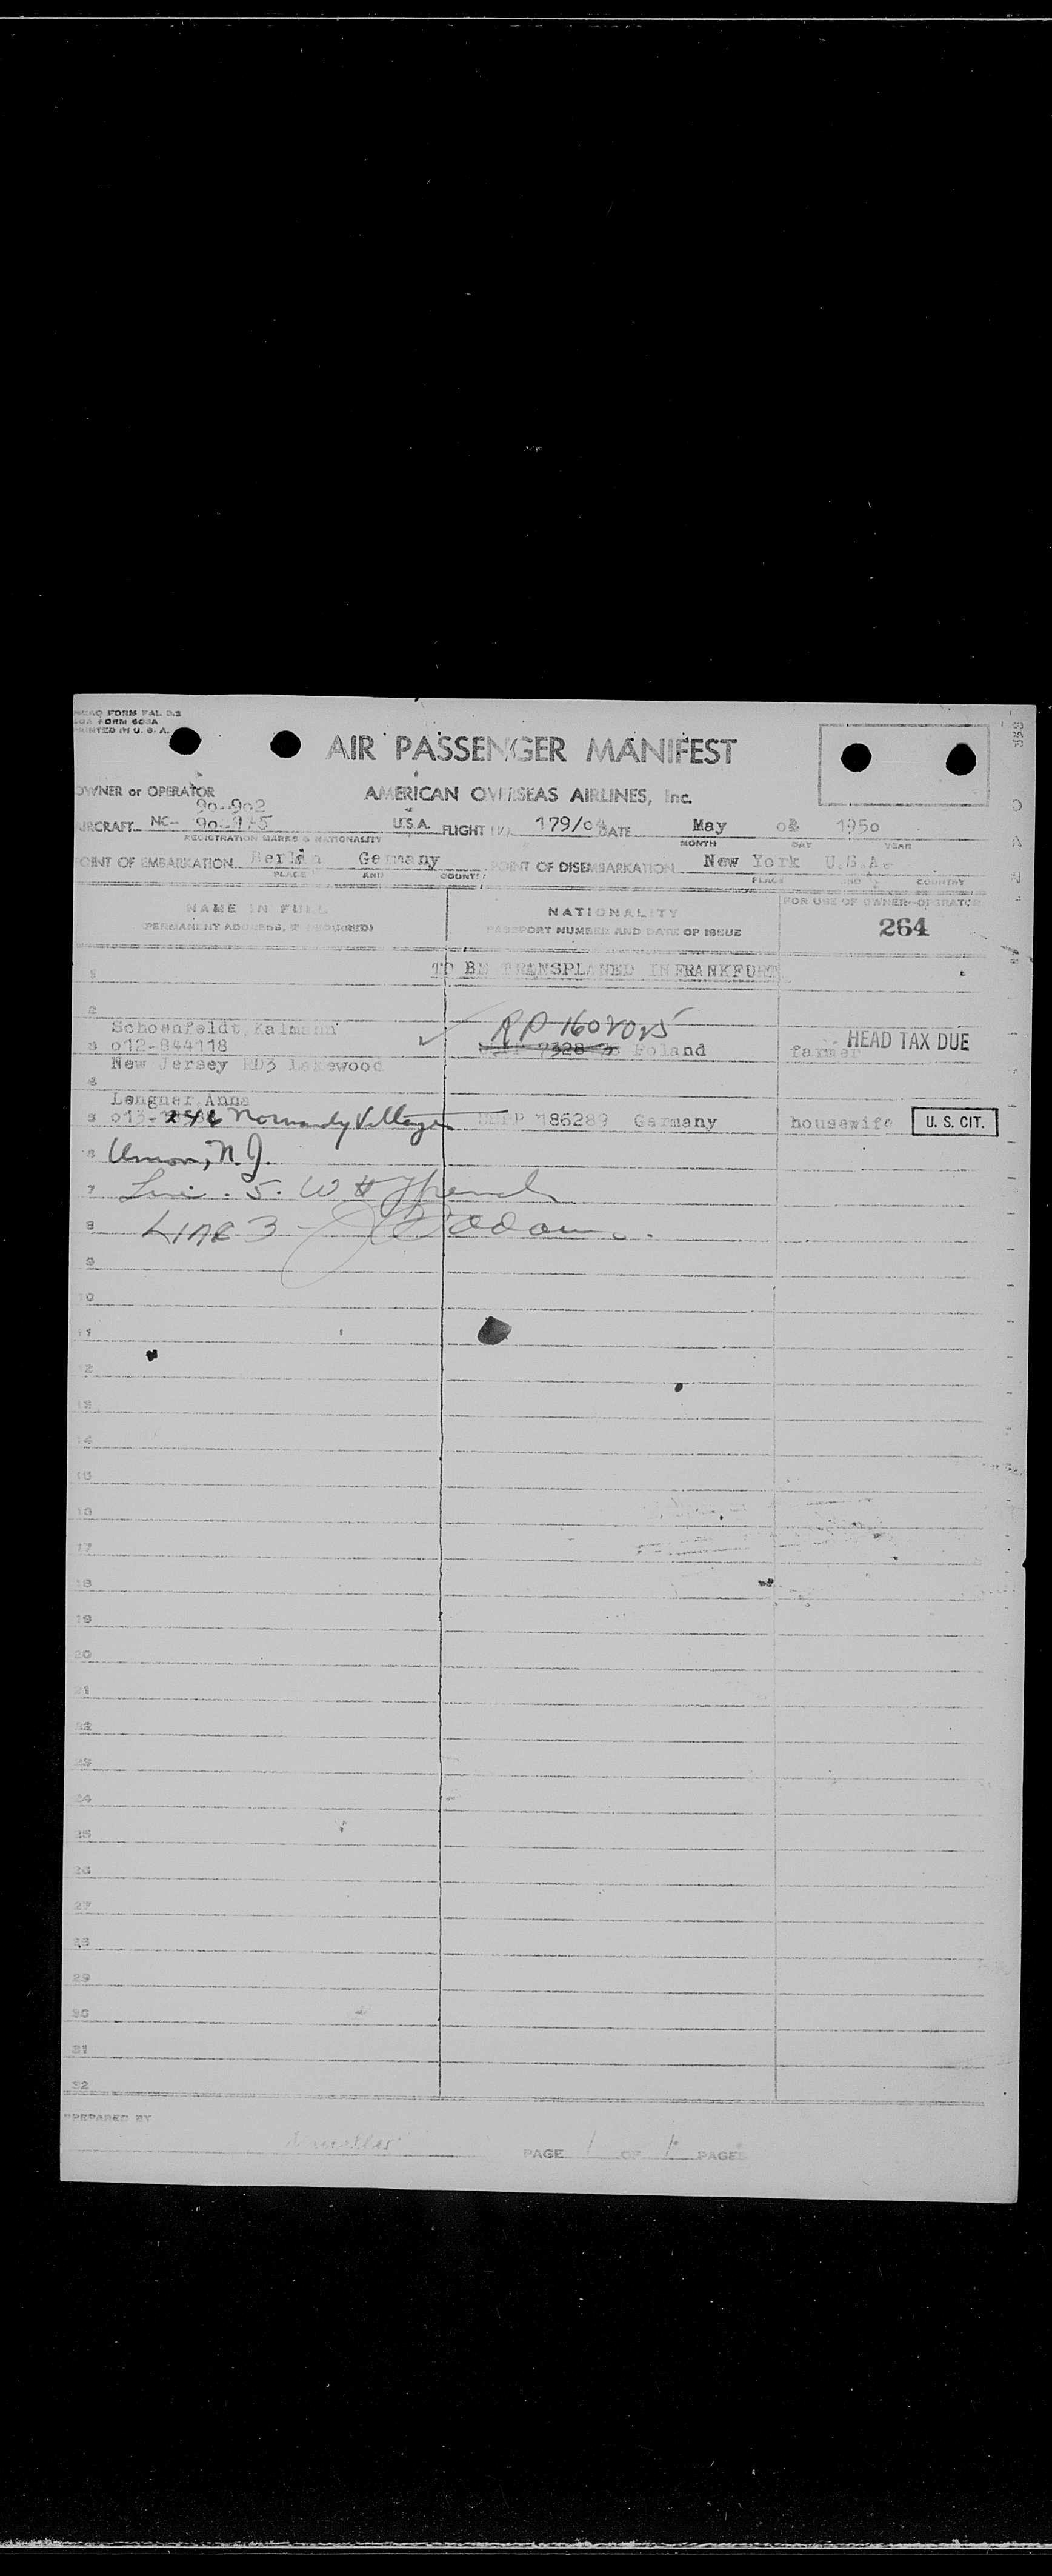 ICAO FORM FAL 2.2
AOA FORM 603A
PRINTED IN U. S. A.
AIR PASSENGER MANIFEST
OWNER or OPERATOR AMERICAN OVERSEAS AIRLINES, Inc.
90-902
AIRCRAFT NC- 90-9 5 U.S.A. FLIGHT 179/04 DATE May 1950
REGISTRATION MARKS & NATIONALITY MONTH DAY YEAR
POINT OF EMBARKATION Berlin Germany POINT OF DISEMBARKATION New York U.S.A.
PLACE AND COUNTRY PLACE AND COUNTRY
NAME IN FULL NATIONALITY FOR USE OF OWNER-OPERATOR
(PERMANENT ADDRESS, IF REQUIRED) PASSPORT NUMBER AND DATE OF ISSUE 264
1 TO BE TRANSPLANED IN FRANKFURT
2
Schoenfeldt, Kalmann RP 1608025
3 o12-844118 Poland farmer HEAD TAX DUE
New Jersey RD3 Lakewood
4
Lengner, Anna
5 o13- Normandy Village 186289 Germany housewife U. S. CIT.
6 Union, N.J.
7
8 LINE 3 -
9
10
11
12
13
14
15
16
17
18
19
20
21
22
23
24
25
26
27
28
29
30
31
32
PREPARED BY
PAGE 1 OF 1 PAGES